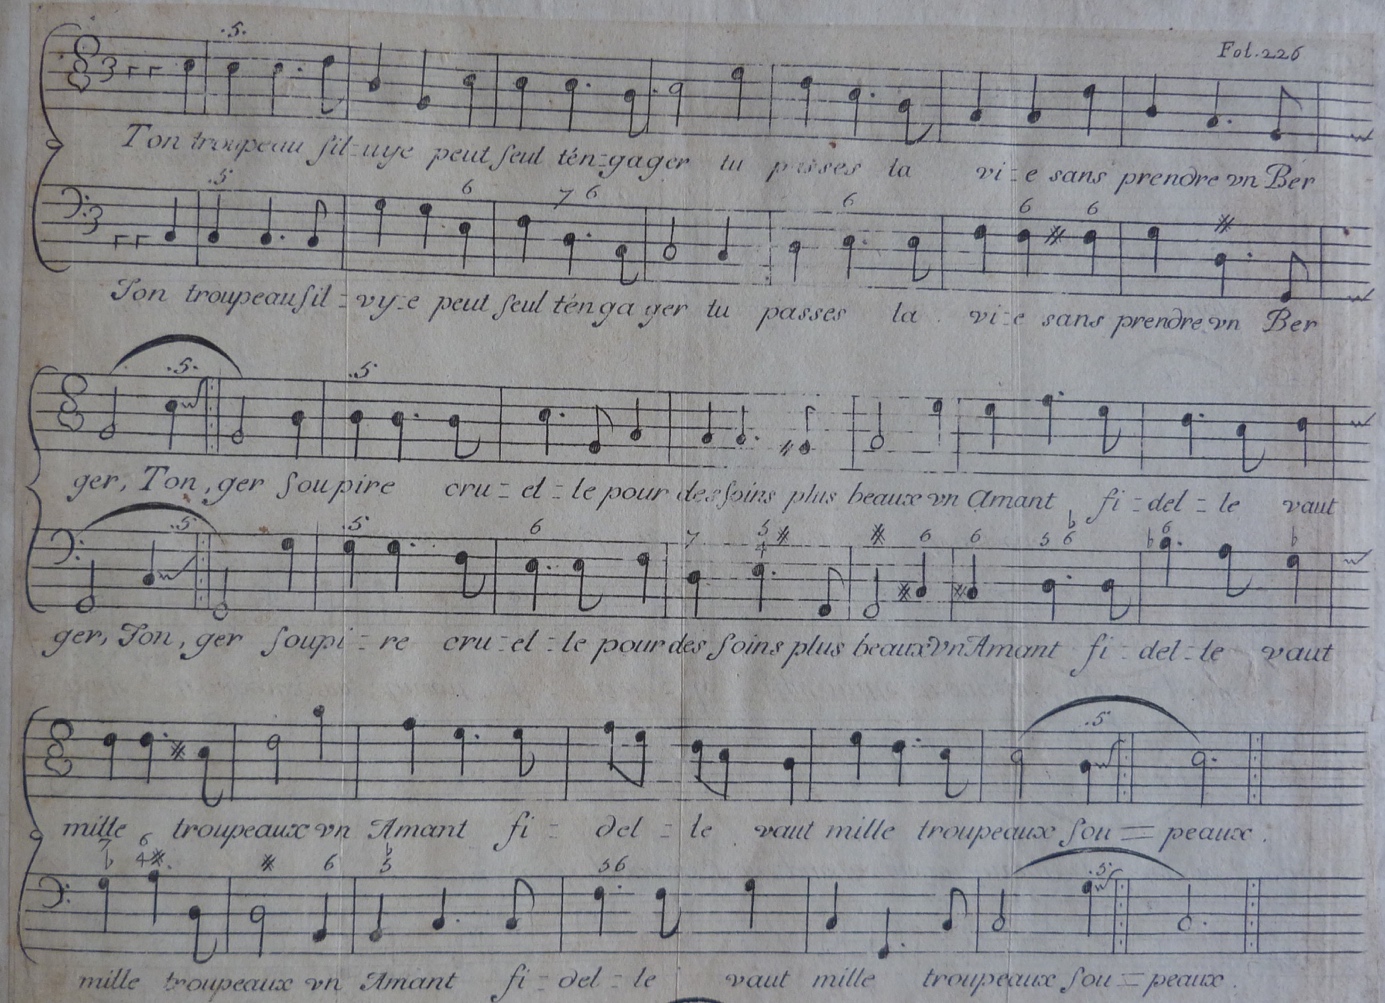 Fol. 226
.5.
3
Ton troupeau sil-uye peut seul tén-gager tu passes la vi-e sans prendre vn Ber
.5. 6 7 6 6 6 6
3
Ton troupeau sil-vy-e peut seul ténga ger tu passes la vi-e sans prendre vn Ber
.5. .5.
ger, Ton, ger soupire cru-el-le pour des soins plus beaux vn Amant fi-del-le vaut
.5. .5. 6 7 5 4 6 6 5 6 6
ger, Ton, ger soupi-re cru-el-le pour des soins plus beaux vn Amant fi-del-le vaut
.5.
mille troupeaux vn Amant fi-del-le vaut mille troupeaux sou=peaux.
7 6 4 6 5 5 6 .5.
mille troupeaux vn Amant fi-del-le vaut mille troupeaux sou=peaux.